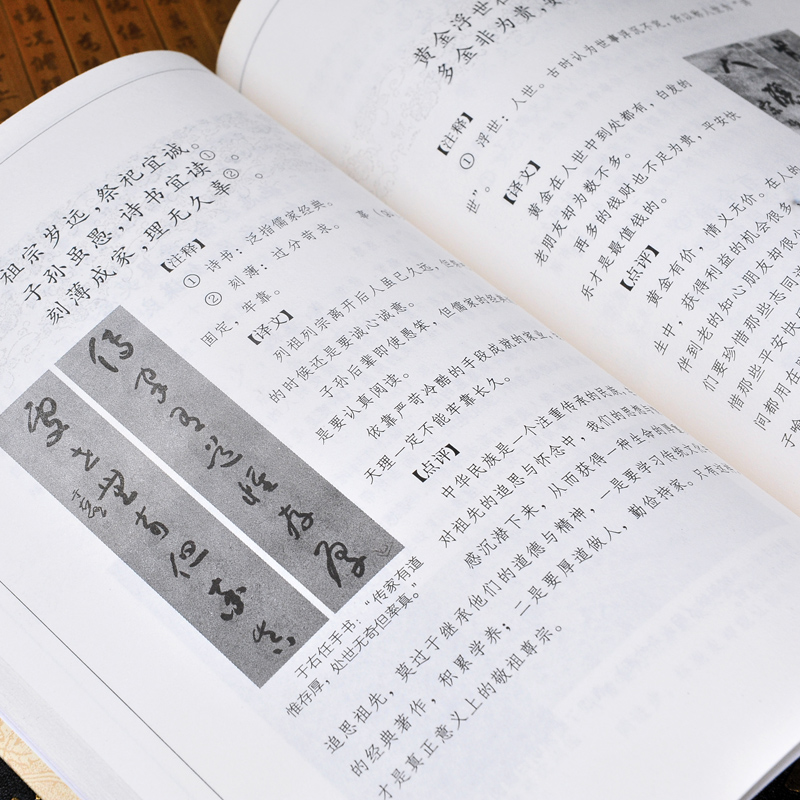 祖宗岁远，祭祀宜诚。
子孙虽愚，诗书宜读①。
刻薄成家，理无久享②。
【注释】
① 诗书：泛指儒家经典。
② 刻薄：过分苛求。
固定，牢靠。
【译文】
列祖列宗离开后人虽已久远，
的时候还是要诚心诚意。
子孙后辈即使愚笨，但儒家的
是要认真阅读。
依靠严苛冷酷的手段成就的家业，
天理一定不能牢靠长久。
【点评】
中华民族是一个注重传承的民族，
对祖先的追思与怀念中，我们的思想与
感沉潜下来，从而获得一种生命的
追思祖先，莫过于继承他们的道德与精神，一是要学习传统文化
的经典著作，积累学养；二是要厚道做人，勤俭持家。只有这
才是真正意义上的敬祖尊宗。
传家有道惟存厚
处世无奇但率真
于右任手书：“传家有道
惟存厚，处世无奇但率真。”
黄金浮世
多金非为贵，安
【注释】
① 浮世：人世。古时认为世事
世”。
【译文】
黄金在人世中到处都有，白发的
老朋友却为数不多。
再多的钱财也不足为贵，平安快
乐才是最值钱的。
【点评】
黄金有价，情义无价。在人的
生中，获得利益的机会很多
伴到老的知心朋友却很
们要珍惜那些志同道
惜那些平安快
间都用在
子